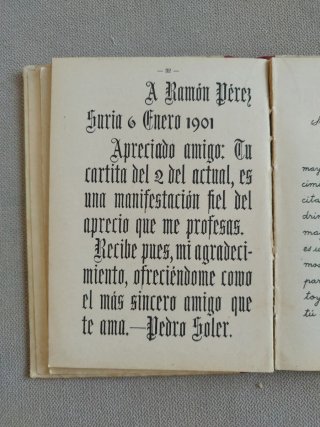 — 32 —
A Ramón Pérez
Suria 6 Enero 1901
Apreciado amigo: Tu
cartita del 2 del actual, es
una manifestación fiel del
aprecio que me profesas.
Recibe pues, mi agradeci-
miento, ofreciéndome como
el más sincero amigo que
te ama.—Pedro Soler.
may
cim
cita
drin
ma
es u
mos
par
toy
tú